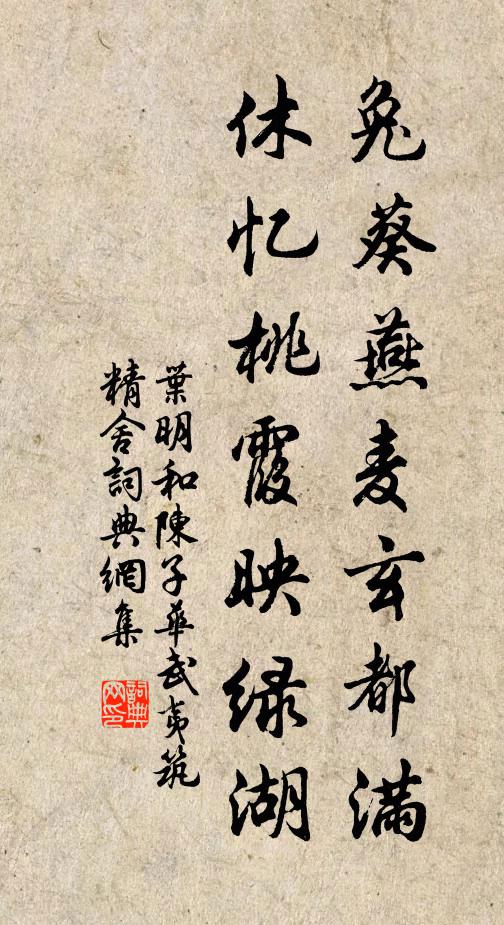 兔葵燕麦玄都满
休忆桃霞映绿湖
葉明和陳子華武夷筑
精舍詞典網集
詞典网印